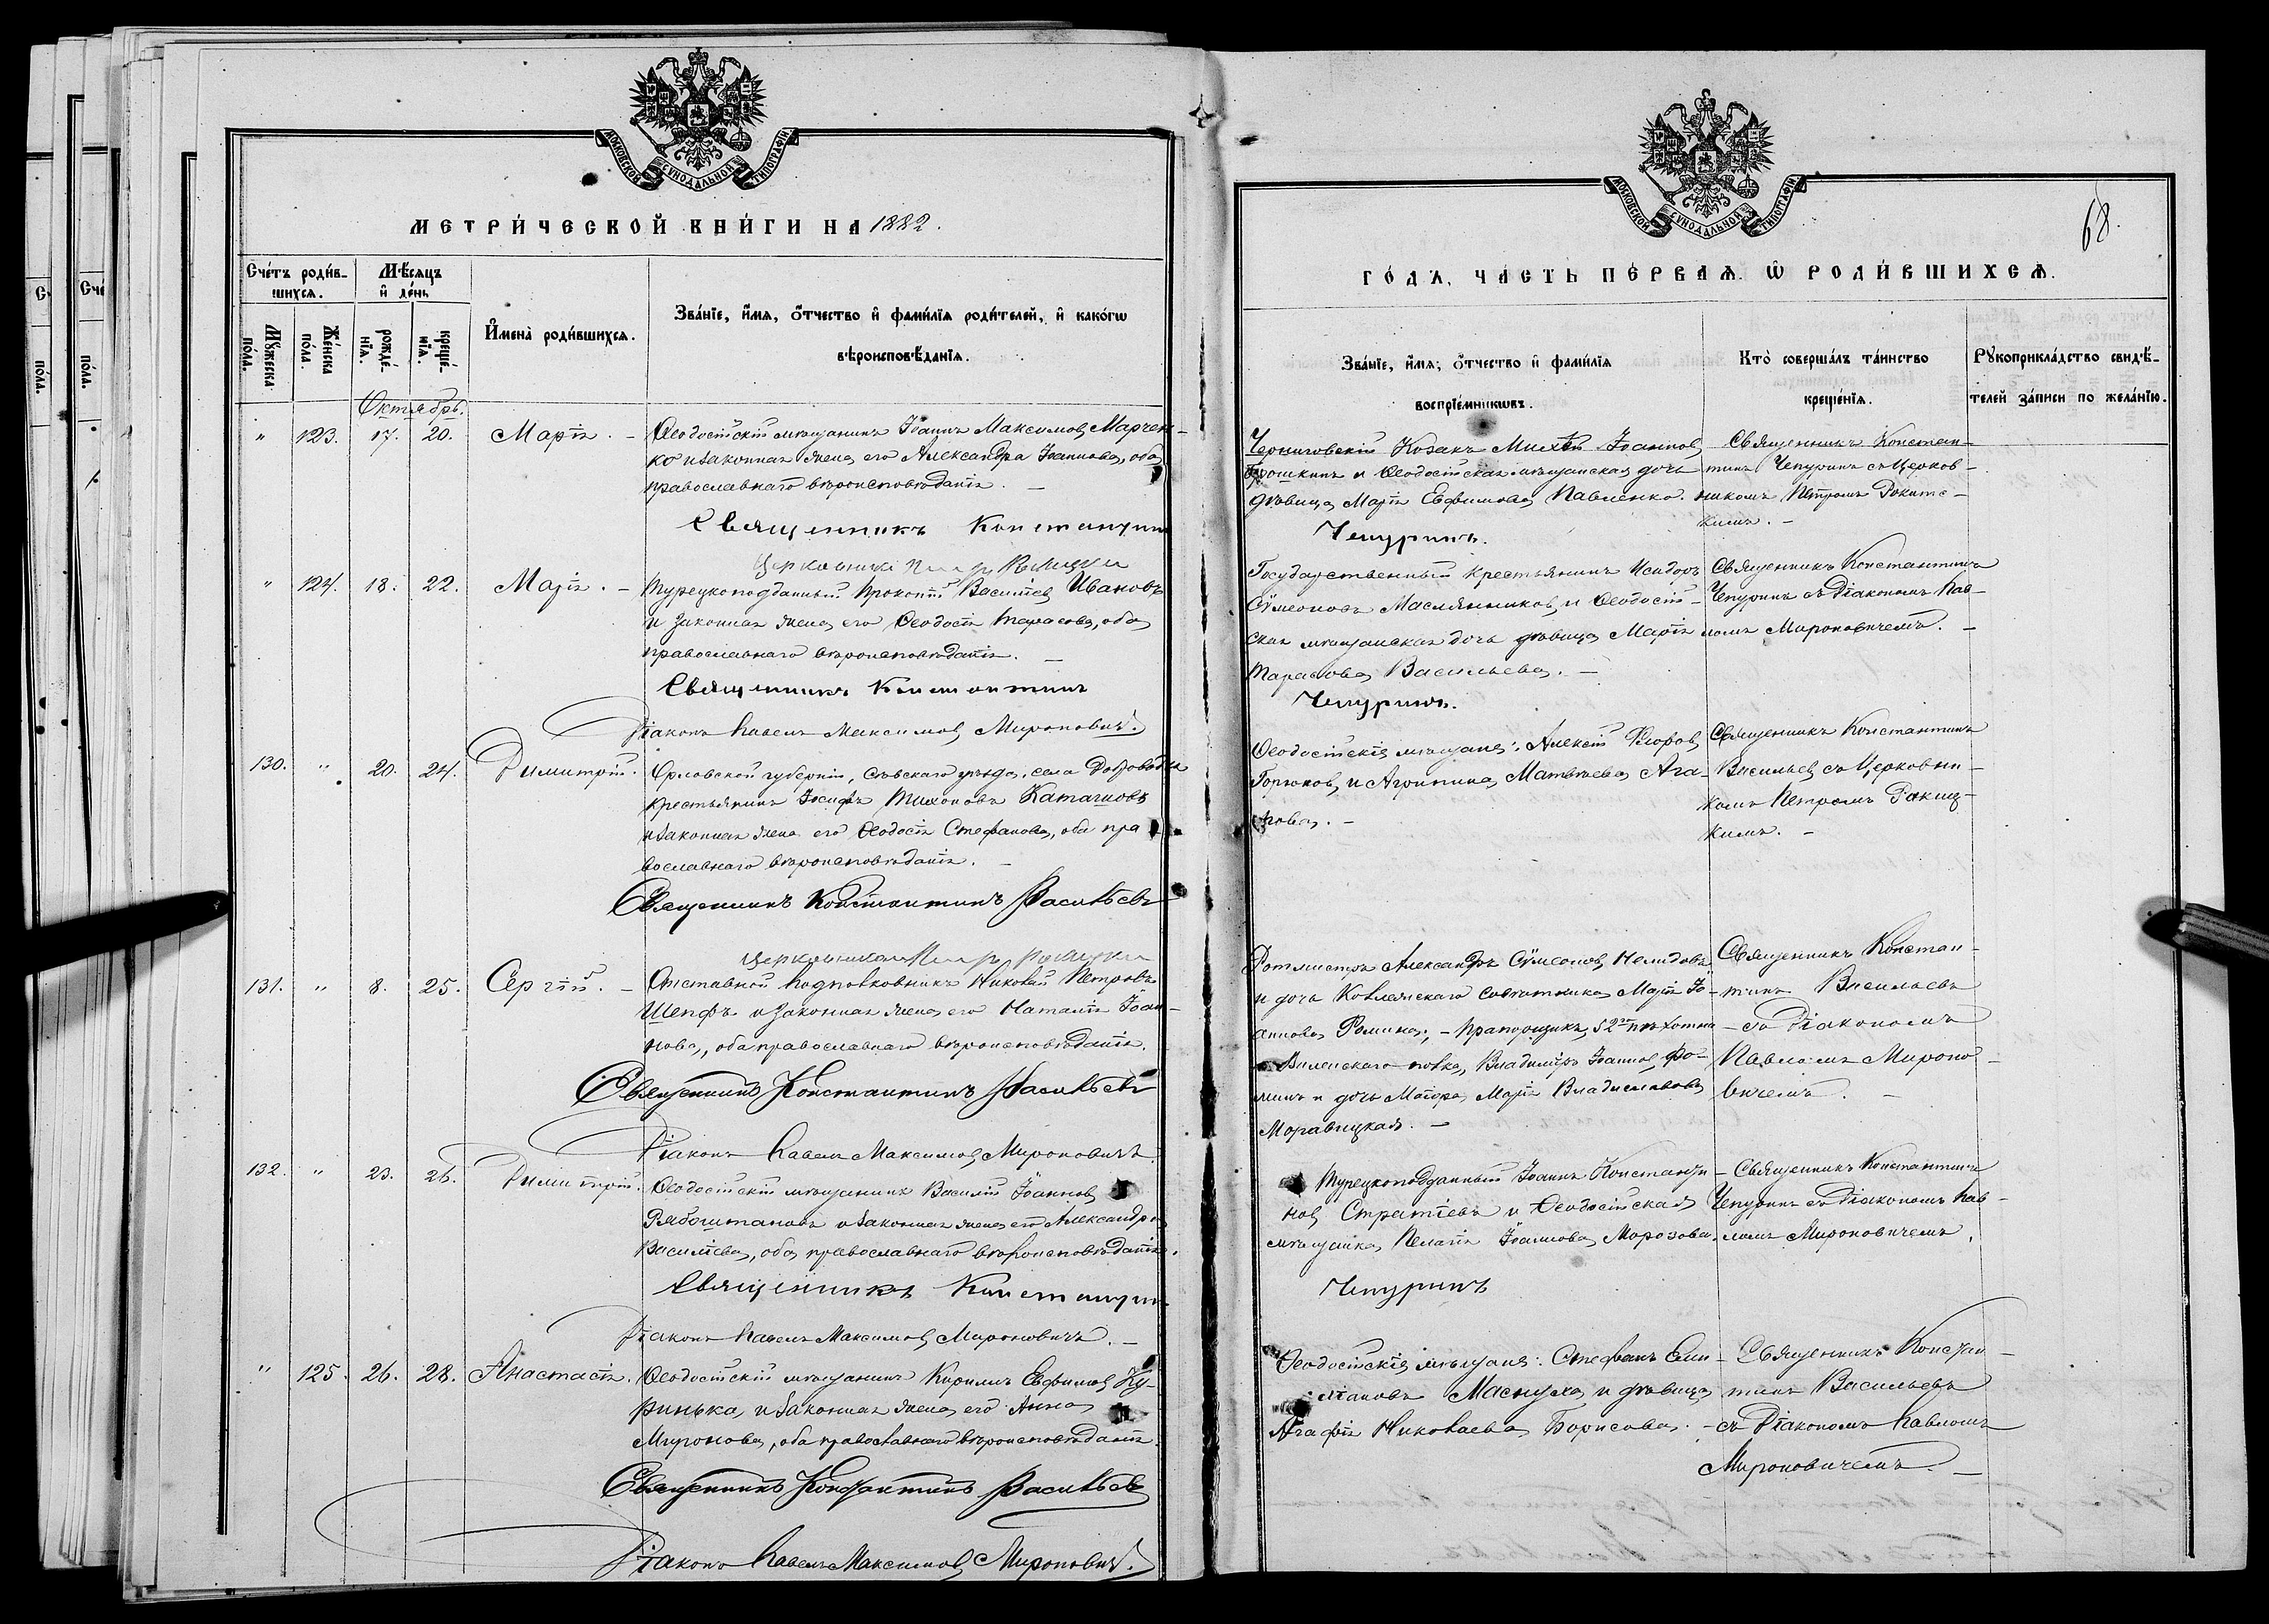 МОСКОВСКОЙ СУНОДАЛЬНОЙ ТИПОГРАФІИ
МЕТРИ́ЧЕСКОЙ КНИ́ГИ НА 1882.
Сче́тъ роди́в-
шихся.
Мѣ́сяцъ
и҆ де́нь
Му́жеска
по́ла.
Же́нска
по́ла.
рожде́-
нїя.
креще́-
нїя.
И҆мена̀ роди́вшихся.
Зва́нїе, и҆́мя, ѻ҆́тчество и҆ фами́лїя роди́телей, и҆ како́гѡ
вѣроисповѣ́данїя.
Октябрь.
" 123. 17. 20. Марія. –
Ѳеодосійскій мѣщанинъ Іоаннъ Максимовъ Марчен-
ко и законная жена его Александра Іоаннова, оба
православнаго вѣроисповѣданія. –
Священникъ Константинъ
Церковникъ Петръ
" 124. 18. 22. Марія. –
Турецкоподданный Прокопій Васильевъ Ивановъ
и законная жена его Ѳеодосія Тарасова, оба
православнаго вѣроисповѣданія. –
Священникъ Константинъ
Діаконъ Павелъ Максимовъ Мироновичъ.
130. " 20. 24. Димитрій.
Орловской губерніи, Сѣвскаго уѣзда, села Доброводья
крестьянинъ Іосифъ Тихоновъ
и законная жена его Ѳеодосія Стефанова, оба пра
вославнаго вѣроисповѣданія. –
Священникъ Константинъ Васильевъ
Церковникъ Петръ
131. " 8. 25. Сергій. –
Отставной Подполковникъ Николай Петровъ
Шепфъ и законная жена его Наталія Іоан-
нова, оба православнаго вѣроисповѣданія.
Священникъ Константинъ Васильевъ
Діаконъ Павелъ Максимовъ Мироновичъ
132. " 23. 26. Димитрій.
Ѳеодосійскій мѣщанинъ Василій Іоанновъ
Рябоштановъ и законная жена его Александра
Васильева, оба православнаго вѣроисповѣданія.
Священникъ Константинъ
Діаконъ Павелъ Максимовъ Мироновичъ. –
" 125. 26. 28. Анастасія.
Ѳеодосійскій мѣщанинъ Кириллъ Евфимовъ Ку-
ринька и законная жена его Анна
Миронова, оба православнаго вѣроисповѣданія.
Священникъ Константинъ Васильевъ
Діаконъ Павелъ Максимовъ Мироновичъ.
МОСКОВСКОЙ СУНОДАЛЬНОЙ ТИПОГРАФІИ
68.
ГО́ДЪ, ЧА́СТЬ ПЕ́РВАЯ. Ѡ҆ РОДИ́ВШИХСЯ.
Зва́нїе, и҆́мя, ѻ҆́тчество и҆ фами́лїя
воспрїе́мникѡвъ.
Кто̀ соверша́лъ та́инство
креще́нїя.
Рꙋкоприкла́дство свидѣ́-
телей за́писи по жела́нїю.
Черниговскій Козакъ Михей Іоанновъ
и Ѳеодосійская мѣщанская дочь
дѣвица Марія Евфимова Павленко.
Чепуринъ.
Священникъ Констан-
тинъ Чепуринъ съ Церков-
никомъ Петромъ
кимъ. –
Государственный крестьянинъ Исидоръ
Сѵмеоновъ Маслянниковъ и Ѳеодосій-
ская мѣщанская дочь дѣвица Марія
Тарасова Васильева. –
Чепуринъ.
Священникъ Константинъ
Чепуринъ съ Діакономъ Пав-
ломъ Мироновичемъ. –
Ѳеодосійскіе мѣщане: Алексій Ѳеодоровъ
Горюновъ, и Агрипина Матвѣева Ага-
нова. –
Священникъ Константинъ
Васильевъ съ Церковни-
комъ Петромъ Ракиц-
кимъ. –
Ротмистръ Александръ Сѵмеоновъ Нелидовъ
и дочь Коллежскаго Совѣтника Марія Іо-
аннова Фомина; – Прапорщикъ 52го пѣхотна
Виленскаго полка, Владиміръ Іоанновъ Фо-
минъ и дочь Маіора, Марія Владиславова
Моравицкая. –
Священникъ Констан-
тинъ Васильевъ
– съ Діакономъ
Павломъ Мироно-
вичемъ. –
Турецкоподданный Іоаннъ Константи-
новъ Стратіевъ и Ѳеодосійская
мѣщанка Пелагія Іоаннова Морозова.
Чепуринъ
Священникъ Константинъ
Чепуринъ съ Діакономъ Пав-
ломъ Мироновичемъ.
Ѳеодосійскіе мѣщане: Стефанъ Еми-
ліановъ Маснуха и дѣвица
Агафія Николаева Борисова. –
Священникъ Констан-
тинъ Васильевъ
съ Діакономъ Павломъ
Мироновичемъ. –